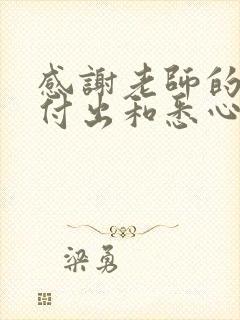 感謝老師的
付出和悉心
梁勇